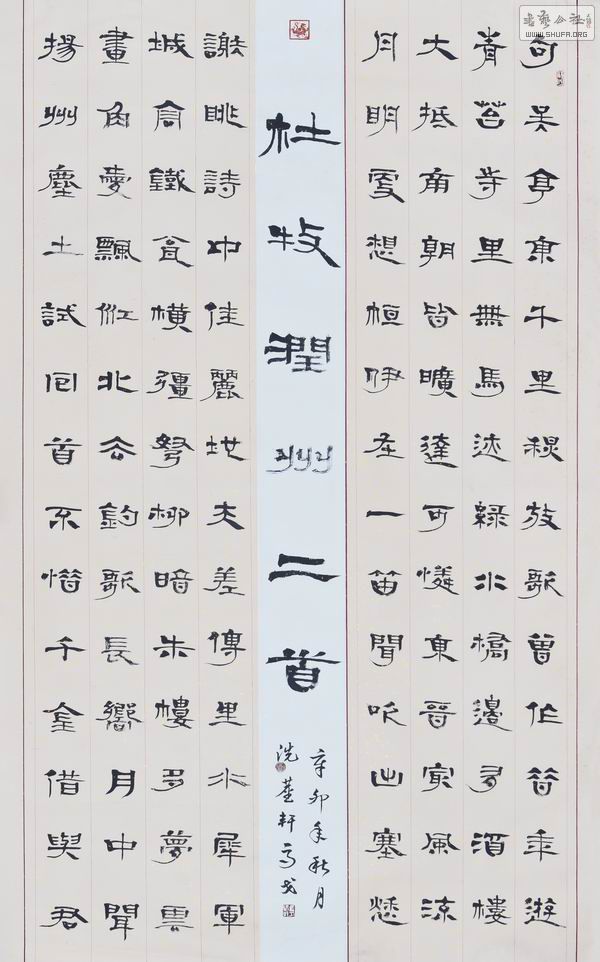 句吴亭東千里秋放歌曾作昔年遊
青苔寺里無馬迹綠水橋邊多酒樓
大抵南朝皆曠達可憐東晉最風流
月明更想桓伊在一笛聞吹出塞愁
杜牧潤州二首
辛卯年秋月
洗塵軒
謝朓詩中佳麗地夫差傳里水犀軍
城高鐵瓮橫彊弩柳暗朱樓多夢雲
畫角愛飄江北去釣歌長嚮月中聞
揚州塵土試回首不惜千金借與君
書藝公社
WWW.SHUFA.ORG